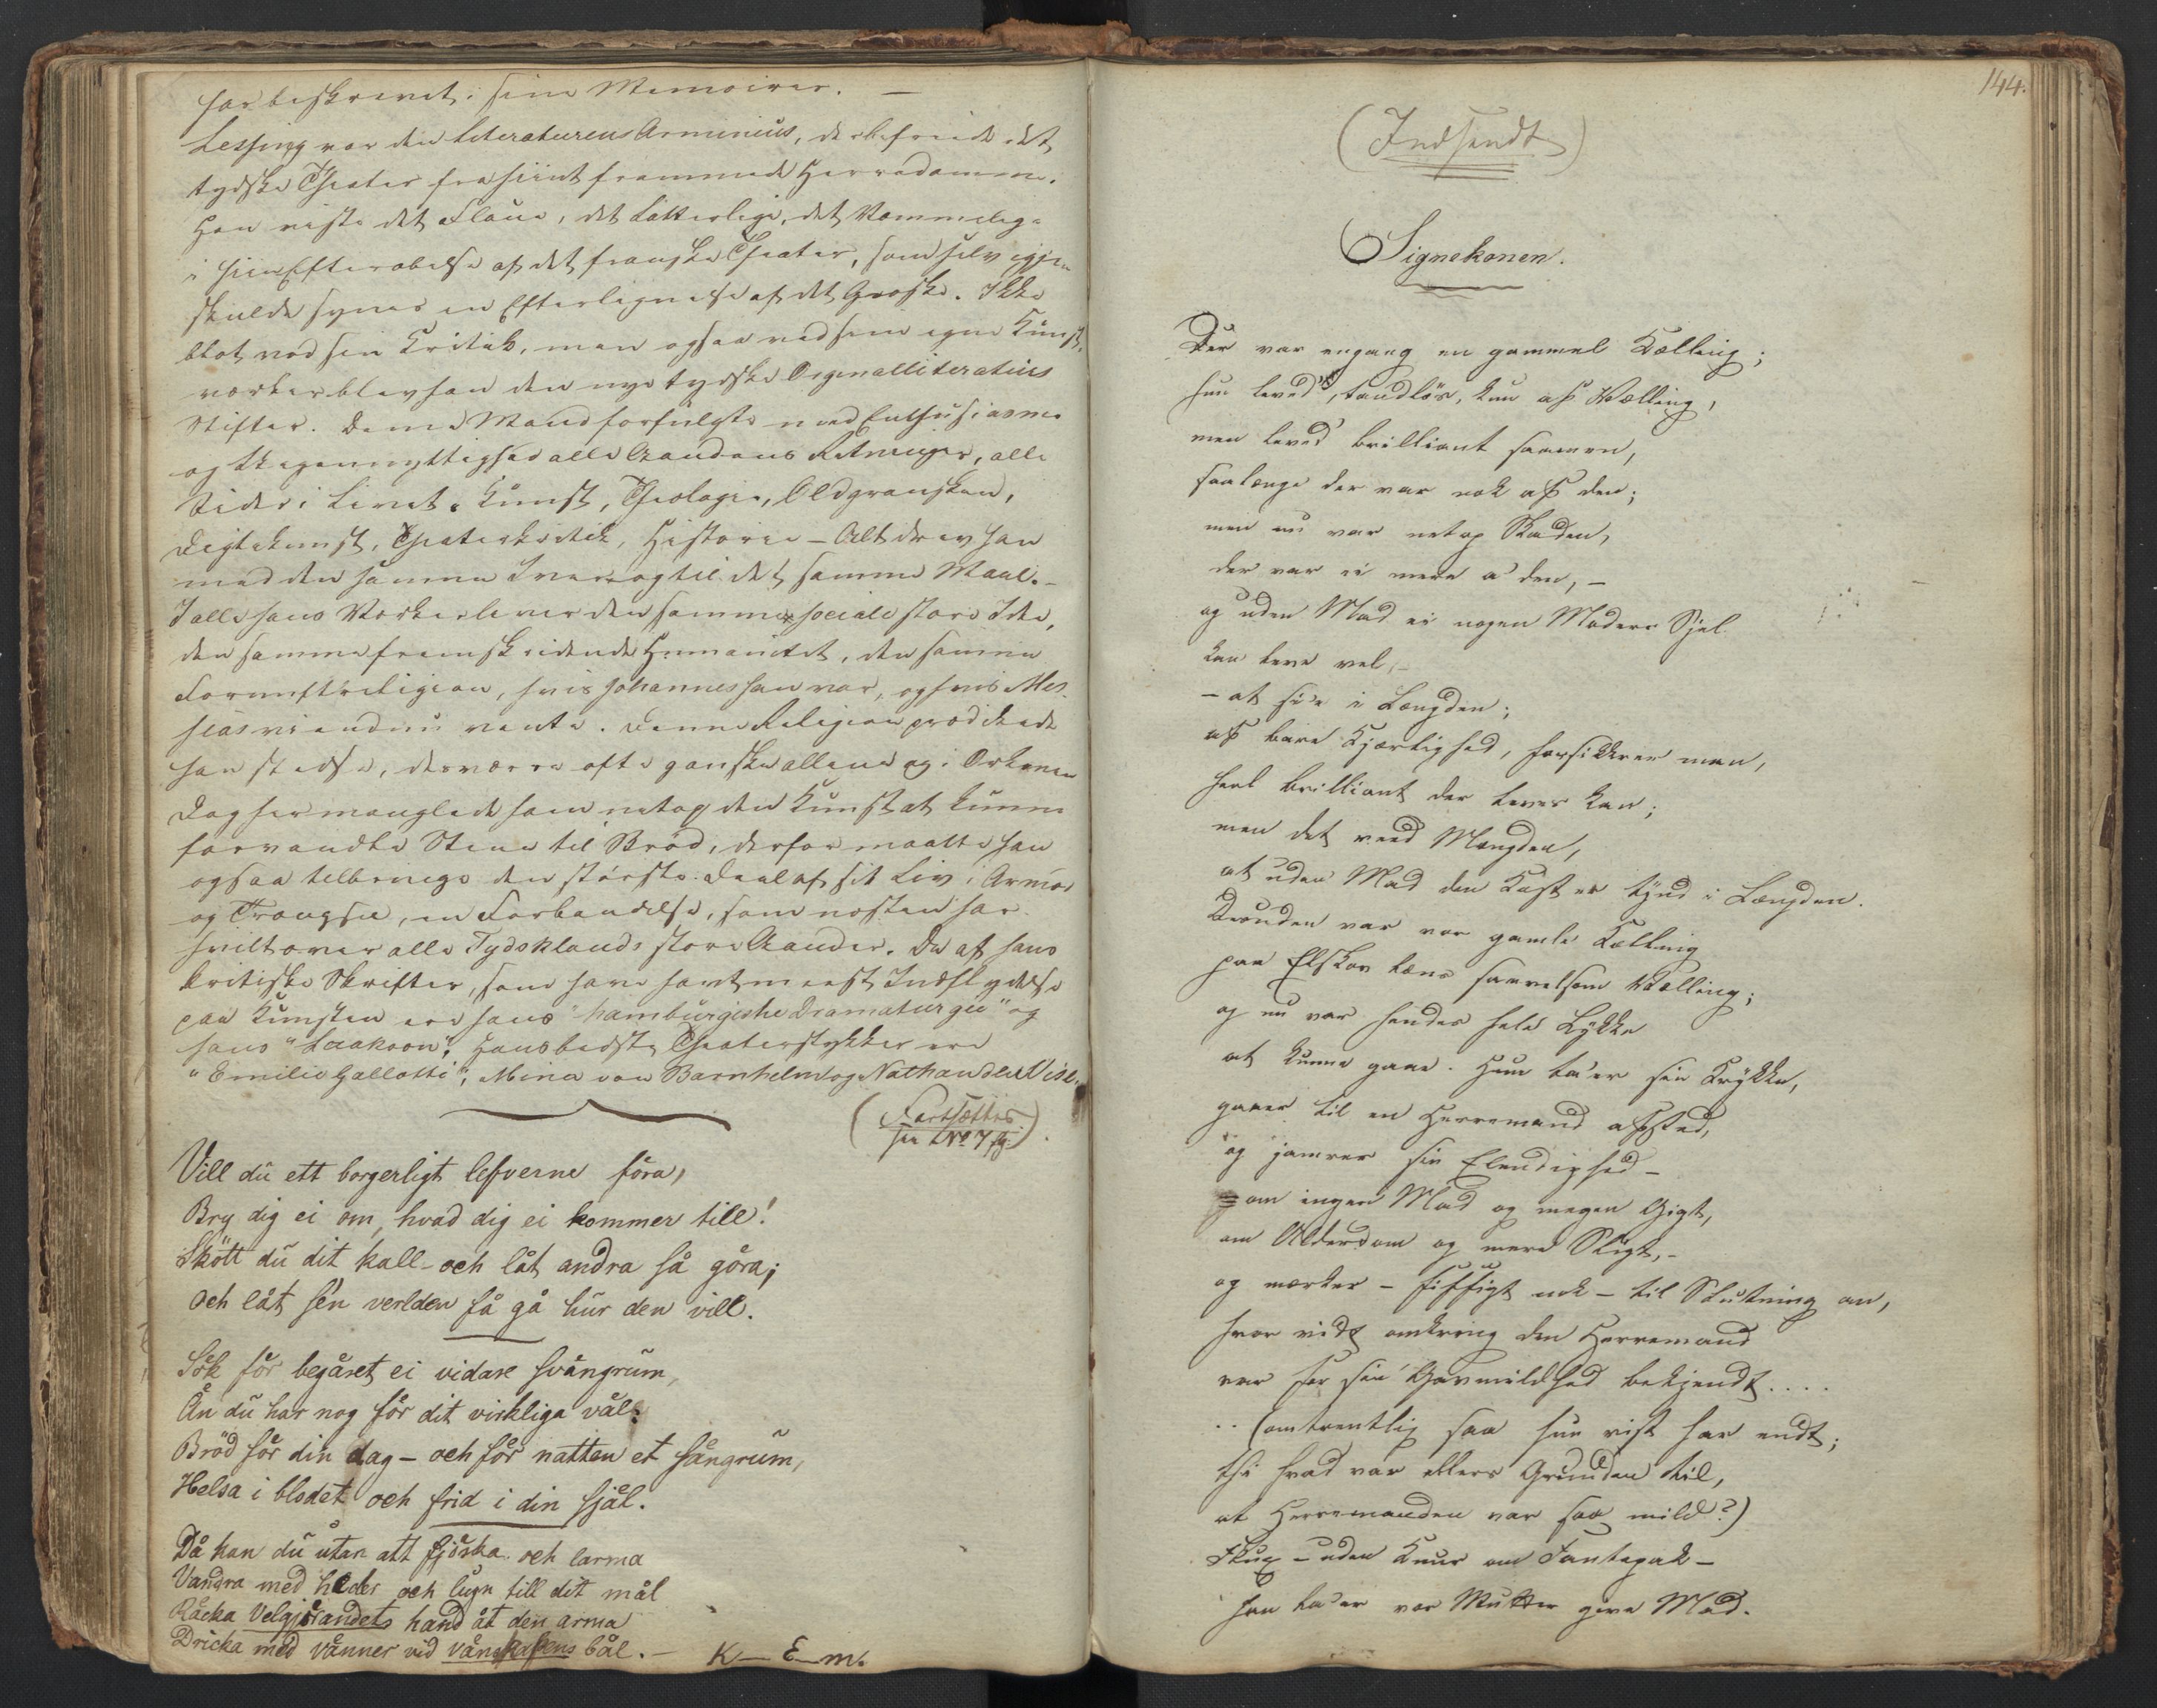 har beskrevet i sine Memoirer. —
Lessing var den Literaturens Arminius, der befriede det
tydske Theater fra hiint fremmede Herredømme.
Han viste det Flaue, det Latterlige, det Vammelige
i hiin Efterabelse af det franske Theater, som selv igjen
skulde synes en Efterlignelse af det Græske. Ikke
blot ved sin Kritik, men ogsaa ved sine egne Kunst-
værker blev han den nye tydske Orginalliteraturs
Stifter. Denne Mand forfulgte med Enthusiasme
og Uegennyttighed alle Aandens Retninger, alle
Sider i Livet. Kunst, Theologie, Oldgransken,
Digtekunst, Theaterkritik, Historie – Alt drev han
med den samme Iver og til det samme Maal. –
I alle hans Værker lever den samme sociale store Idee,
den samme fremskridende Humanitet, den samme
Fornuftreligion, hvis Johannes han var, og hvis Mes-
sias vi endnu vente. Denne Religion prædikede
han stedse, desværre ofte ganske allene og i Ørkenen
Dog her manglede ham netop den Kunst at kunne
forvandle Stene til Brød, derfor maatte han
ogsaa tilbringe den største Deel af sit Liv i Armod
og Trængsel, en Forbandelse, som næsten har
hvilt over alle Tydsklands store Aander. De af hans
kritiske Skrifter, som have havt meest Indflydelse
paa Kunsten ere hans "hamburgishe Dramaturgie" og
hans "Laokoon"; Hans bedste Theaterstykker ere
"Emilie Gallotti", Mina von Barnhelm og Nathan den Vise.
(Fortsættes.
see No 7 fg.).
Vill du ett borgerligt lefverne föra,
Bry dig ei om, hvad dig ei kommer till!
Skött du dit kall – och låt andra så göra;
Och låt sen verlden få gå hur den vill.
Sök för begäret ei vidare svängrum,
Än du har nog för dit virkliga väl:
Bröd för din dag – och för natten et sängrum,
Helsa i blodet och frid i din själ.
Då kan du utan att fjöska och larma
Vandra med heder och lugn till dit mål
Räcka Velgjörandets hand åt den arma
Dricka med vänner vid vänskapens bål. – K— E—m.
144.
(Indsendt)
Signekonen.
Der var engang en gammel Kælling;
hun leved', tandløs, kun af Vælling,
men leved' brilliant saamæn,
saalænge der var nok af den;
men nu var netop Skaden,
der var ei mere a' den, –
og uden Mad ei nogen Moders Sjel
kan leve vel, –
– at si'e i Længden;
af bare Kjærlighed, forsikkrer man,
heel brilliant der leves kan;
men det veed Mængden,
at uden Mad den Kost er tynd i Længden.
Desuden var vor gamle Kælling
paa Elskov læns saavelsom Vælling;
og nu var hendes hele Lykke
at kunne gaae. Hun ta'er sin Krykke,
gaaer til en Herremand afsted,
og jamrer sin Elendighed –
om ingen Mad og megen Gigt,
om Alderdom og mere Sligt, –
og mærker – fiffigt nok – til Slutning an,
hvor vidt omkring den Herremand
var for sin Gavmildhed bekjendt. . . .
. . (omtrentlig saa hun vist har endt;
thi hvad var ellers Grunden til,
at Herremanden var saa mild?)
Flux – uden Knur om Fantepak –
han la'er vor Mutter give Mad.